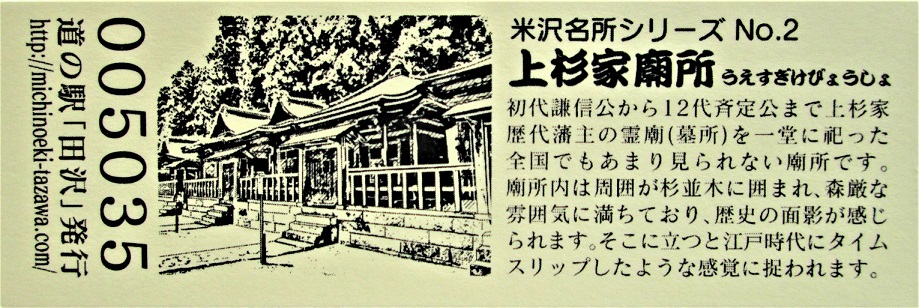 005035
道の駅「田沢」発行
http://michinoeki-tazawa.com/
米沢名所シリーズ No.2
上杉家廟所 うえすぎけびょうしょ
初代謙信公から12代斉定公まで上杉家
歴代藩主の霊廟(墓所)を一堂に祀った
全国でもあまり見られない廟所です。
廟所内は周囲が杉並木に囲まれ、森厳な
雰囲気に満ちており、歴史の面影が感じ
られます。そこに立つと江戸時代にタイム
スリップしたような感覚に捉われます。